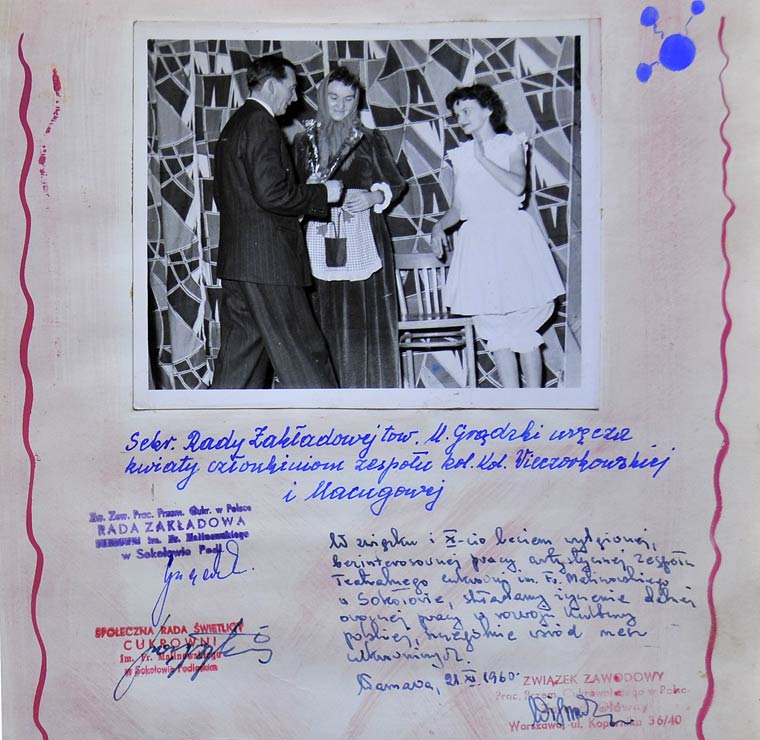 Sekr. Rady Zakładowej tow. M. Grądzki wręcza
kwiaty członkiniom zespołu kol. kol. Wieczorkowskiej
i Macugowej
Zw. Zaw. Prac. Przem. Cukr. w Polsce
RADA ZAKŁADOWA
im. Fr. Malinowskiego
w Sokołowie Podl.
SPOŁECZNA RADA ŚWIETLICY
CUKROWNI
im. Fr. Malinowskiego
w Sokołowie Podlaskim
W związku z X-cio leciem wytężonej,
bezinteresownej pracy artystycznej Zespołu
Teatralnego cukrowni im. Fr. Malinowskiego
w Sokołowie, składamy życzenia dalszej
owocnej pracy w rozwoju kultury
polskiej, szczególnie wśród mas
Warszawa, 21.XI.1960
ZWIĄZEK ZAWODOWY
Prac. Przem. Cukrowniczego w Polsce
Warszawa, ul. Kopernika 36/40